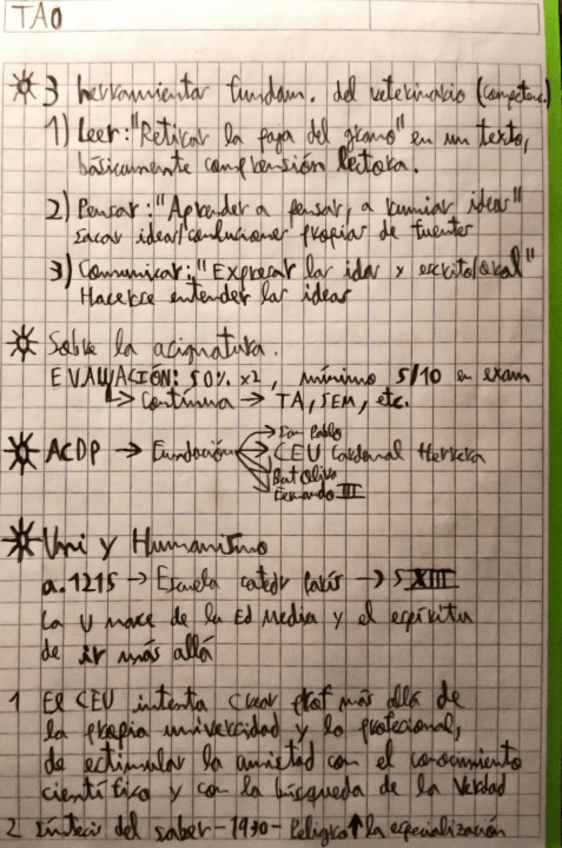 TA0
3 herramientas fundam. del veterinario (competenc.)
1) Leer: "Retirar la paja del grano" en un texto,
básicamente comprensión lectora.
2) Pensar: "Aprender a pensar, a rumiar ideas"
Sacar ideas/conclusiones propias de fuentes
3) Comunicar: "Expresar las idas y escrito/oral"
Hacerse entender las ideas
Sobre la asignatura.
EVALUACIÓN: 50% x2, mínimo 5/10 en exam
↳ Contínua → TA, SEM, etc.
ACDP → Fundación
San Pablo
CEU Cardenal Herrera
Fernando III
Uni y Humanismo
a. 1215 → Escuela catedr París → S XIII
La U nace de la Ed Media y el espíritu
de ir más allá
1 El CEU intenta crear prof más allá de
la propia universidad y lo profesional,
de estimular la amistad con el conocimiento
científico y con la búsqueda de la Verdad
2 Síntesis del saber - 1930 - Peligro ↑ la especialización